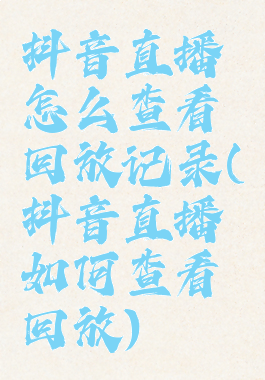 抖音直播
怎么查看
回放记录(
抖音直播
如何查看
回放)